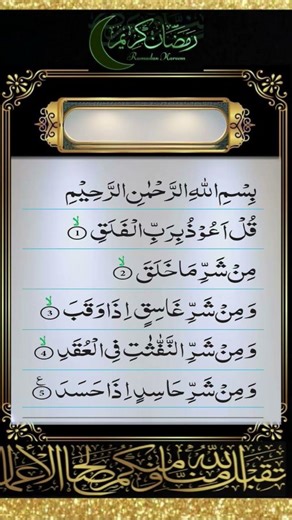 رمضان كريم
Ramadan Kareem
بِسْمِ اللهِ الرَّحْمٰنِ الرَّحِيْمِ
قُلْ اَعُوْذُ بِرَبِّ الْفَلَقِ ۙ ①
مِنْ شَرِّ مَا خَلَقَ ۙ ②
وَمِنْ شَرِّ غَاسِقٍ اِذَا وَقَبَ ۙ ③
وَمِنْ شَرِّ النَّفّٰثٰتِ فِي الْعُقَدِ ۙ ④
وَمِنْ شَرِّ حَاسِدٍ اِذَا حَسَدَ ⑤ ع
تقبل الله منا ومنكم صالح الاعمال